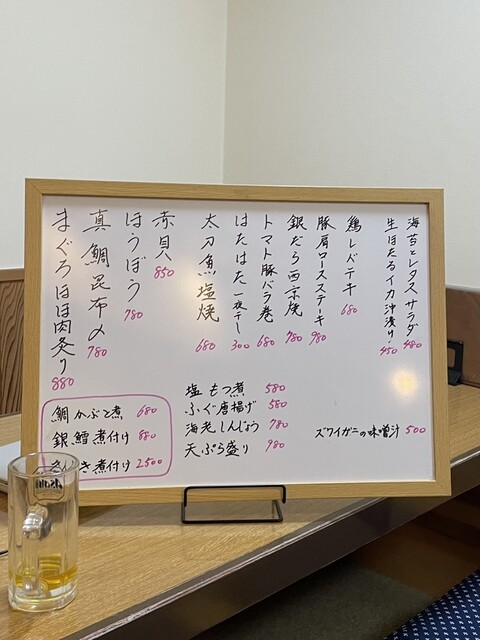 海苔とレタスサラダ 480
生ほたるイカ沖漬け! 450
鶏レバテキ 680
豚肩ロースステーキ 980
銀だら西京焼 780
トマト豚バラ巻 680
はたはた一夜干し 300
太刀魚塩焼 680
赤貝 850
ほうぼう 780
真鯛昆布〆 780
まぐろほほ肉炙り 880
塩もつ煮 580
ふぐ唐揚げ 580
海老しんじょう 780
天ぷら盛り 980
ズワイガニの味噌汁 500
鯛かぶと煮 680
銀鱈煮付け 880
き煮付け 2500